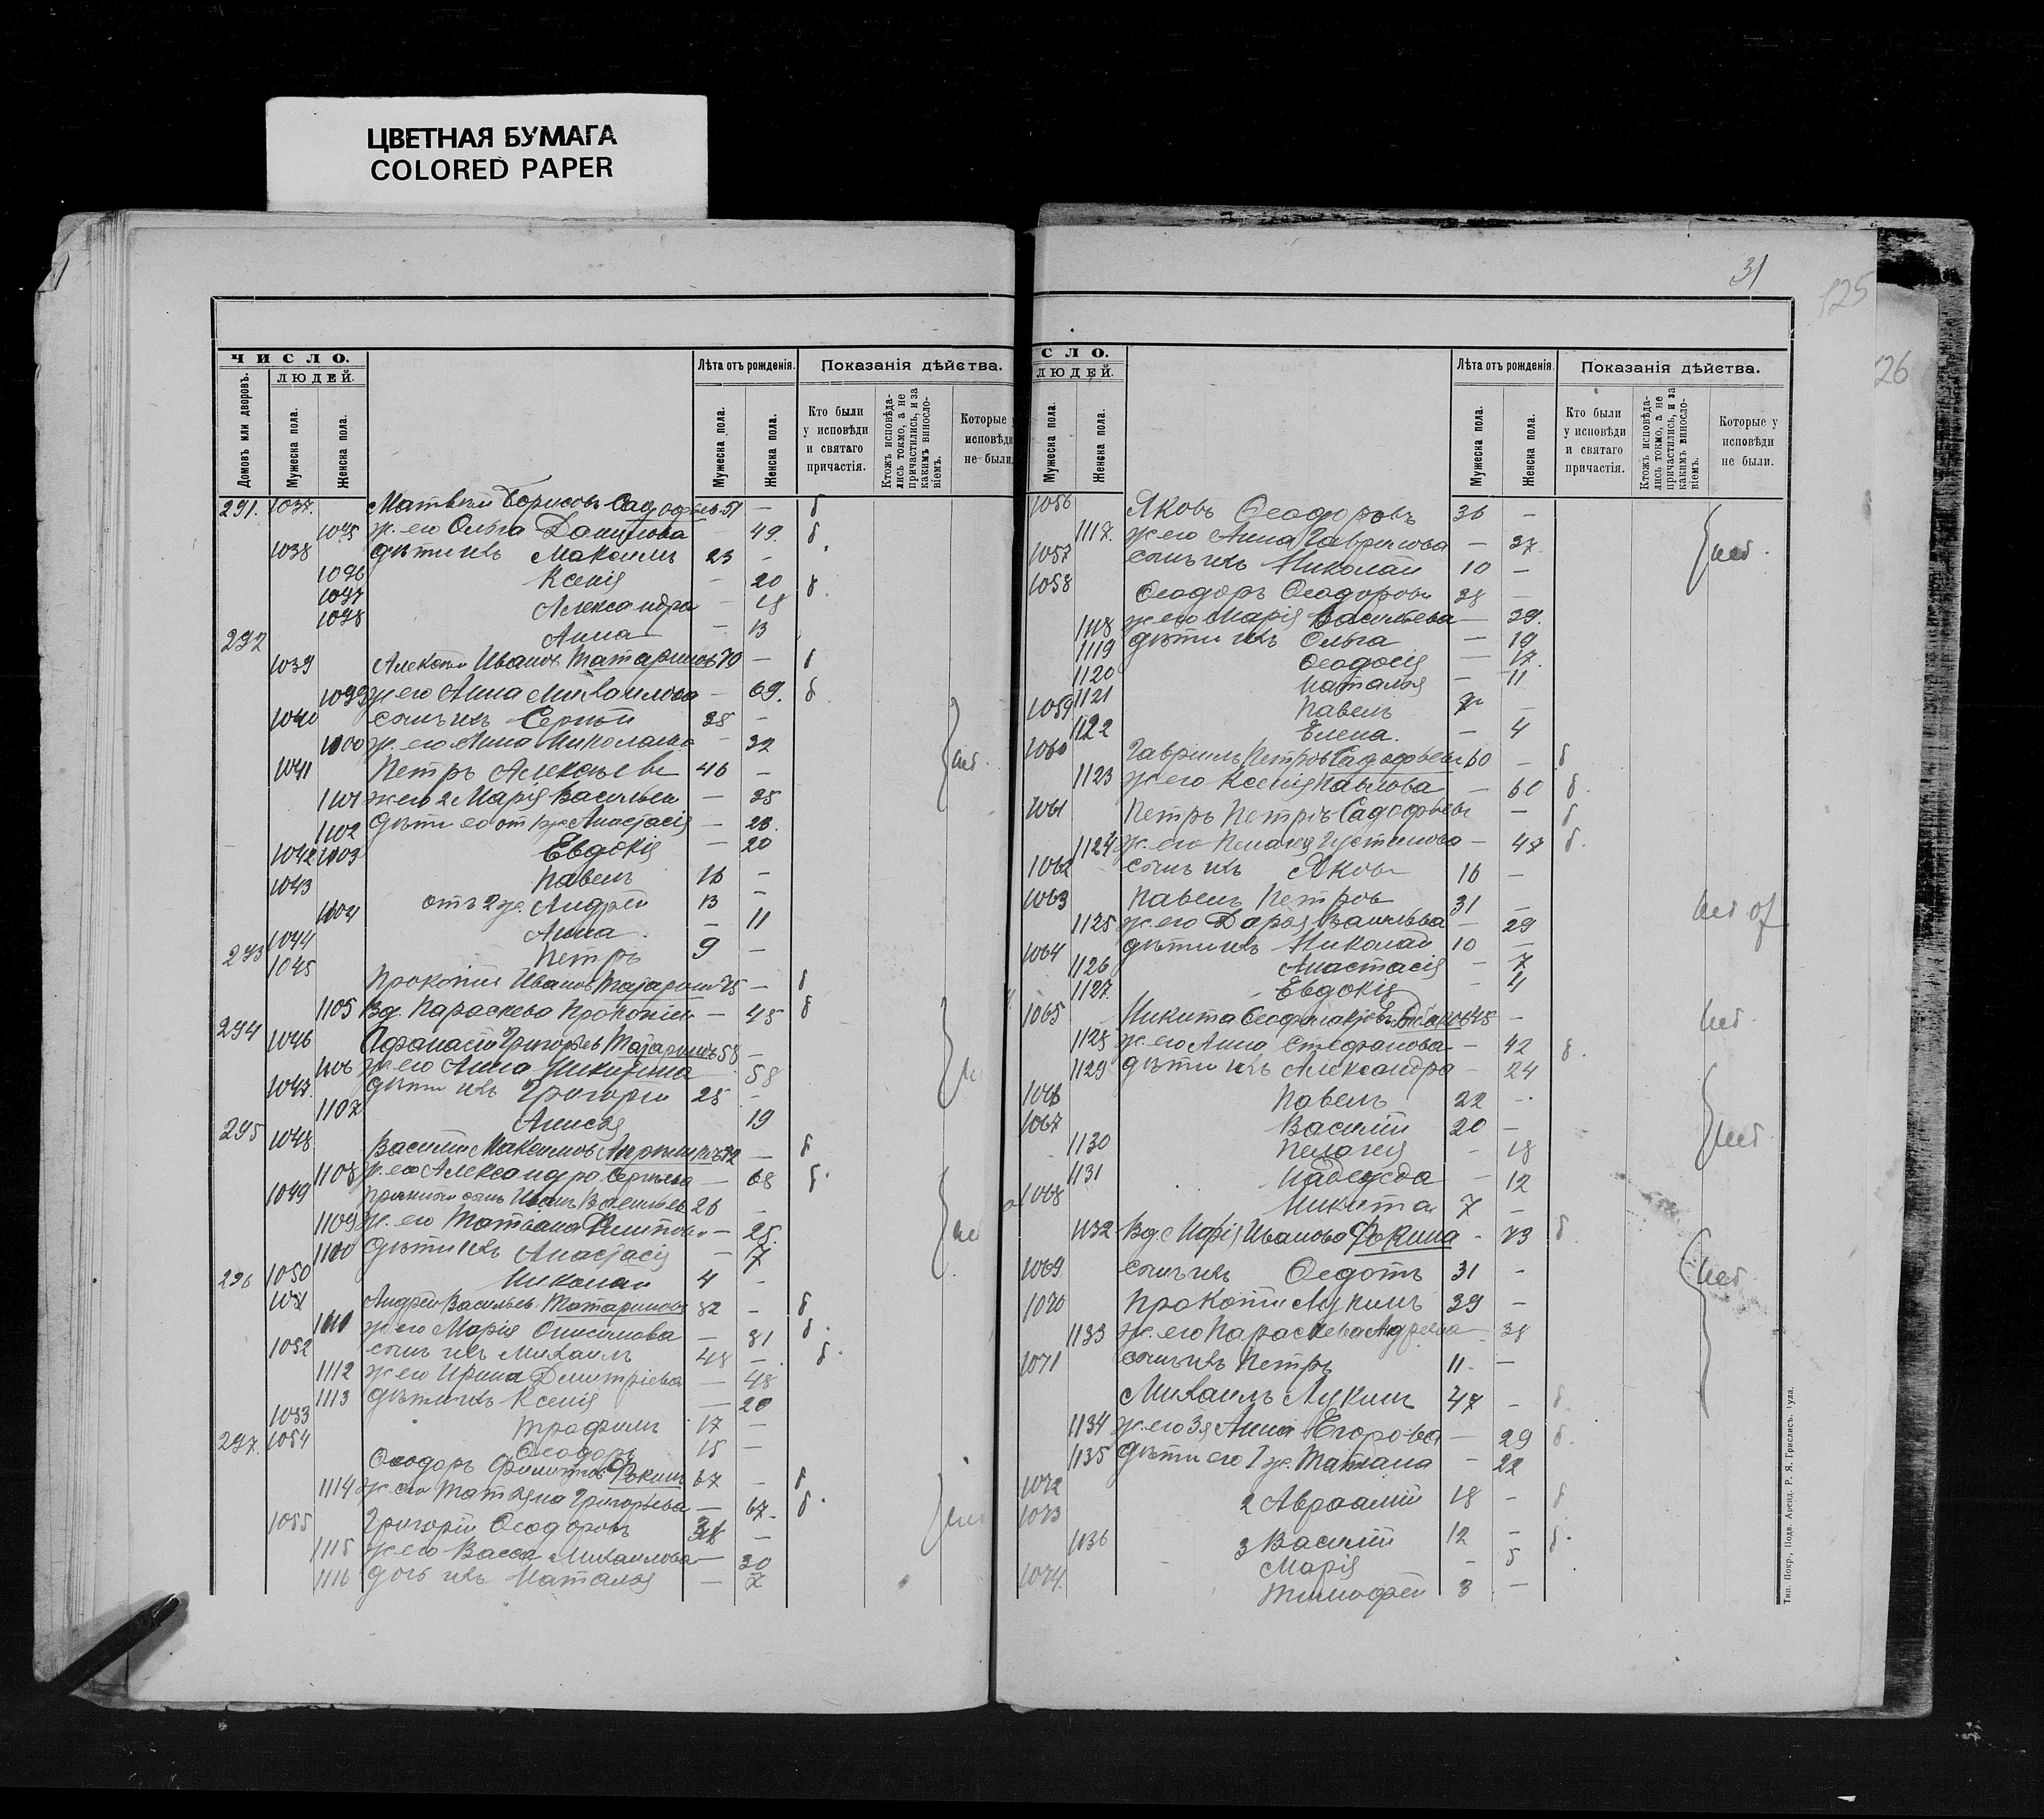 ЦВЕТНАЯ БУМАГА
COLORED PAPER
ЧИСЛО.
ЛЮДЕЙ.
Домовъ или дворовъ.
Мужеска пола.
Женска пола.
Лѣта отъ рожденія.
Мужеска пола.
Женска пола.
Показанія дѣйства.
Кто были у исповѣди и святаго причастія.
Ктожъ исповѣда-
лись токмо, а не
причастились, и за
какимъ винослo-
віемъ.
Которые у
исповѣди
не были.
291. 1037. Матвѣй Борисовъ 51 — б
1095 ж. его Ольга Данилова — 49. б
1038 дѣти ихъ Максимъ 23 —
1096 Ксенія — 20 б.
1097 Александра — 18
1098 Анна — 13
292
1039 Алексѣй Ивановъ Татариновъ 70 — б
1099 ж его Анна Михаилова — 69. б.
1040 сынъ ихъ Сергѣй 28 —
1100 ж. его Анна Николаева — 32
1041 Петръ Алексѣевъ 46 —
1101 ж его 2 Марія Васильев — 35
1102 Дѣти его от 1 ж Анастасія — 23.
1103 Евдокія — 20
1042 Павелъ 16 —
1043 отъ 2 ж. Андрей 13 —
1104 Анна — 11
1044 Петръ 9 —
293
1045 Прокопій Ивановъ Татаринов 75 — б
1105 Вд. Параскева Прокопіев — 45 б
294
1046 Афанасій Григорьев Татариновъ 58 —
1106 ж. его Анна Никитина 58
1047. дѣти ихъ Григорій 25 —
1107 Анисія 19
295
1048 Василій Максимовъ 72 — б
1108 ж. его Александра Сергѣева — 68 б.
1049 сынъ Иванъ Васильев 26 —
1109 ж. его Татьана Филипов — 25.
1100 Дѣти ихъ Анастасія — 7
1050 Николай 4 —
296
1051 Андрей Васильев Татариновъ 82 — б
ж его Марія Онисимова — 81 б.
1052 сынъ ихъ Михаилъ 48 — б.
1112 ж его Ирина Димитріева — 48
1113 дѣти ихъ Ксенія — 20
1053 Трофимъ 17 —
1054 Ѳеодоръ 15 —
297.
Ѳеодоръ Филиппов Фокинъ 67 — б
1114 ж его Татіяна Григорьева — 67. б.
1055 Григорій Ѳеодоровъ —
1115 ж его Васса Михаилова — 30
1116 дочь ихъ Наталья — 7
31
125
126
СЛО.
ЛЮДЕЙ.
Мужеска пола.
Женска пола.
Лѣта отъ рожденія.
Мужеска пола.
Женска пола.
Показанія дѣйства.
Кто были
у исповѣди
и святаго
причастія.
Ктожъ исповѣда-
лись токмо, а не
причастились, и за
какимъ винослo-
віемъ.
Которые у
исповѣди
не были.
1056 Яковъ Ѳеодоровъ 36 —
1117. ж его Анна Гаврилова — 37.
1057 сынъ ихъ Николай 10 —
1058 Ѳеодоръ Ѳеодоровъ 38 —
1118 ж его Марія Васильева — 39.
1119 дѣти ихъ Ольга — 19
1120 Ѳеодосія — 17.
1121 Наталья — 11
1059 Павелъ 7 —
1122 Елена. — 4
1060 Гавріилъ Петровъ 60 — б
1123 ж его Ксенія Павлова — 60 б.
1061 Петръ Петровъ — б
1124 ж. его Пелагея Устинова — 47 б.
1062 сынъ ихъ Яковъ 16 —
1063 Павелъ Петров 31 —
1125 ж его Дарья Васильева — 29
1064 дѣти ихъ Николай 10 —
1126 Анастасія — 7
1127. Евдокія — 4
1065 Никита 48 —
1128 ж его Анна Стефанова — 42 б.
1129 дѣти ихъ Александра — 24
1066 Павелъ 22 —
1067 Василій 20 —
1130 Пелагея — 18
1131 Надежда — 12
1068 Никита 7 —
1132 Вд. Марія Иванова Фокина — 73 б.
1069 сынъ ихъ Ѳедотъ 31 —
1070 Прокопій Лукинъ 39 —
1133 ж. его Параскева Андреева — 38
1071 сынъ ихъ Петръ 11. —
Михаилъ Лукинъ 47 — б
1134 ж. его 3я Анна Егорова — 29 б.
1135 Дѣти его 1 ж. Татіана — 22
1072
2 Авраамій 18 — б
1073
3 Василій 12 — б.
1136 Марія — 5
1074. Тимофей 3 —
Тип. Покр., Подв. Аренд. Р. Я. Грислисъ. Тула.